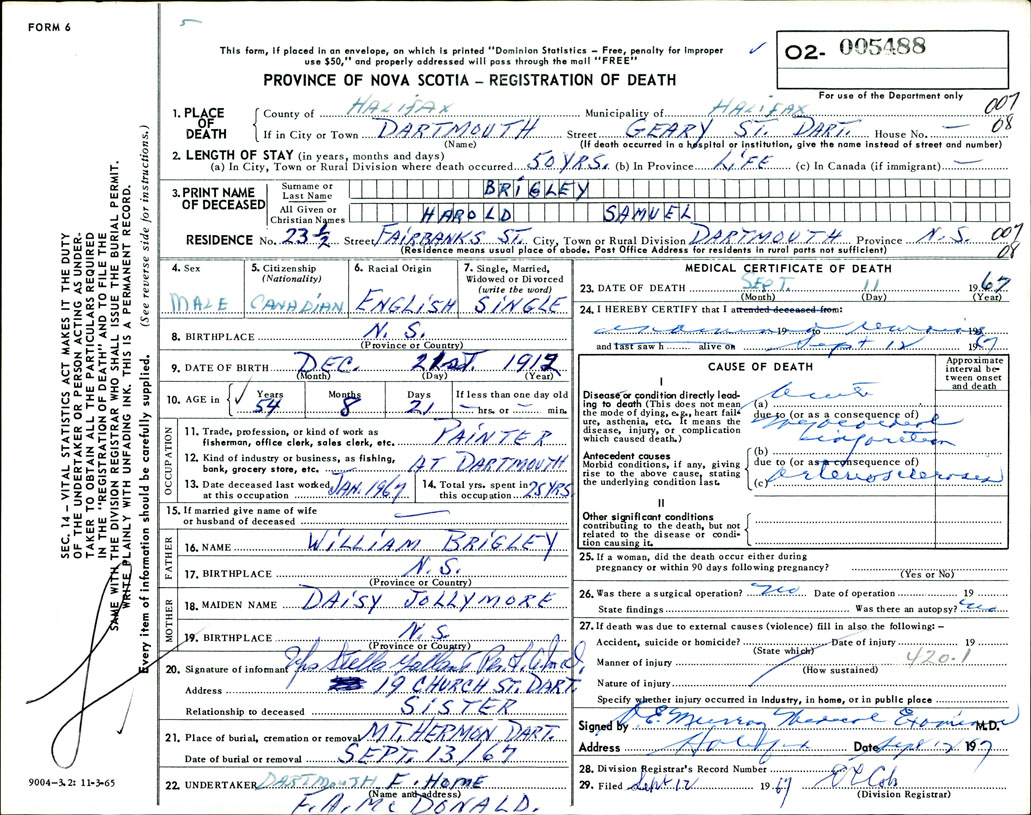 FORM 6
5
This form, if placed in an envelope, on which is printed "Dominion Statistics – Free, penalty for improper
use $50," and properly addressed will pass through the mail "FREE"
✓
O2- 005488
For use of the Department only
PROVINCE OF NOVA SCOTIA – REGISTRATION OF DEATH
007
08
1. PLACE OF DEATH
County of HALIFAX Municipality of HALIFAX
If in City or Town DARTMOUTH Street GEARY ST. DART. House No. —
(Name) (If death occurred in a hospital or institution, give the name instead of street and number)
2. LENGTH OF STAY (in years, months and days)
(a) In City, Town or Rural Division where death occurred 50 YRS. (b) In Province LIFE (c) In Canada (if immigrant) —
3. PRINT NAME OF DECEASED
Surname or Last Name BRIGLEY
All Given or Christian Names HAROLD SAMUEL
RESIDENCE No. 23 1/2 Street FAIRBANKS ST. City, Town or Rural Division DARTMOUTH Province N.S.
(Residence means usual place of abode. Post Office Address for residents in rural parts not sufficient)
007
08
4. Sex MALE
5. Citizenship (Nationality) CANADIAN
6. Racial Origin ENGLISH
7. Single, Married, Widowed or Divorced (write the word) SINGLE
8. BIRTHPLACE N.S.
(Province or Country)
9. DATE OF BIRTH DEC. 21ST. 1912
(Month) (Day) (Year)
10. AGE in ✓ Years 54 Months 8 Days 21 If less than one day old — hrs. or — min.
OCCUPATION
11. Trade, profession, or kind of work as fisherman, office clerk, sales clerk, etc. PAINTER
12. Kind of industry or business, as fishing, bank, grocery store, etc. AT DARTMOUTH
13. Date deceased last worked at this occupation JAN. 1967
14. Total yrs. spent in this occupation 25 YRS.
15. If married give name of wife or husband of deceased —
FATHER
16. NAME WILLIAM BRIGLEY
17. BIRTHPLACE N.S.
(Province or Country)
MOTHER
18. MAIDEN NAME DAISY JOLLYMORE
19. BIRTHPLACE N.S.
(Province or Country)
20. Signature of informant Mrs Stella
Address 19 CHURCH ST. DART.
Relationship to deceased SISTER
21. Place of burial, cremation or removal MT. HERMON DART.
Date of burial or removal SEPT. 13/67
22. UNDERTAKER DARTMOUTH F. HOME
(Name and address)
F. A. McDONALD.
MEDICAL CERTIFICATE OF DEATH
23. DATE OF DEATH SEPT. 11 1967
(Month) (Day) (Year)
24. I HEREBY CERTIFY that I attended deceased from:
19 to 196
and last saw h alive on Sept 12 1967
CAUSE OF DEATH
Approximate interval between onset and death
I
Disease or condition directly leading to death (This does not mean the mode of dying, e.g., heart failure, asthenia, etc. It means the disease, injury, or complication which caused death.)
(a) Acute
due to (or as a consequence of)
myocardial
infarction
Antecedent causes
Morbid conditions, if any, giving rise to the above cause, stating the underlying condition last.
(b)
due to (or as a consequence of)
(c) arteriosclerosis
II
Other significant conditions contributing to the death, but not related to the disease or condition causing it.
25. If a woman, did the death occur either during pregnancy or within 90 days following pregnancy?
(Yes or No)
26. Was there a surgical operation? No Date of operation 19
State findings Was there an autopsy? No
27. If death was due to external causes (violence) fill in also the following: –
Accident, suicide or homicide? Date of injury 19
(State which)
Manner of injury 420.1
(How sustained)
Nature of injury
Specify whether injury occurred in Industry, in home, or in public place
Signed by E. Murray Medical Examiner M.D.
Address Halifax Date Sept 12 1967
28. Division Registrar's Record Number
29. Filed Sept 12 1967
(Division Registrar)
SEC. 14 – VITAL STATISTICS ACT MAKES IT THE DUTY
OF THE UNDERTAKER OR PERSON ACTING AS UNDER-
TAKER TO OBTAIN ALL THE PARTICULARS REQUIRED
IN THE "REGISTRATION OF DEATH" AND TO FILE THE
SAME WITH THE DIVISION REGISTRAR WHO SHALL ISSUE THE BURIAL PERMIT.
WRITE PLAINLY WITH UNFADING INK. THIS IS A PERMANENT RECORD.
Every item of information should be carefully supplied. (See reverse side for instructions.)
9004-3.2: 11-3-65